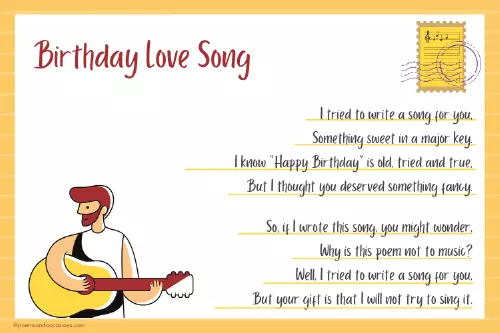 Birthday Love Song
I tried to write a song for you,
Something sweet in a major key.
I know "Happy Birthday" is old, tried and true,
But I thought you deserved something fancy.
So, if I wrote this song, you might wonder,
Why is this poem not to music?
Well, I tried to write a song for you,
But your gift is that I will not try to sing it.
©poemsandoccasions.com